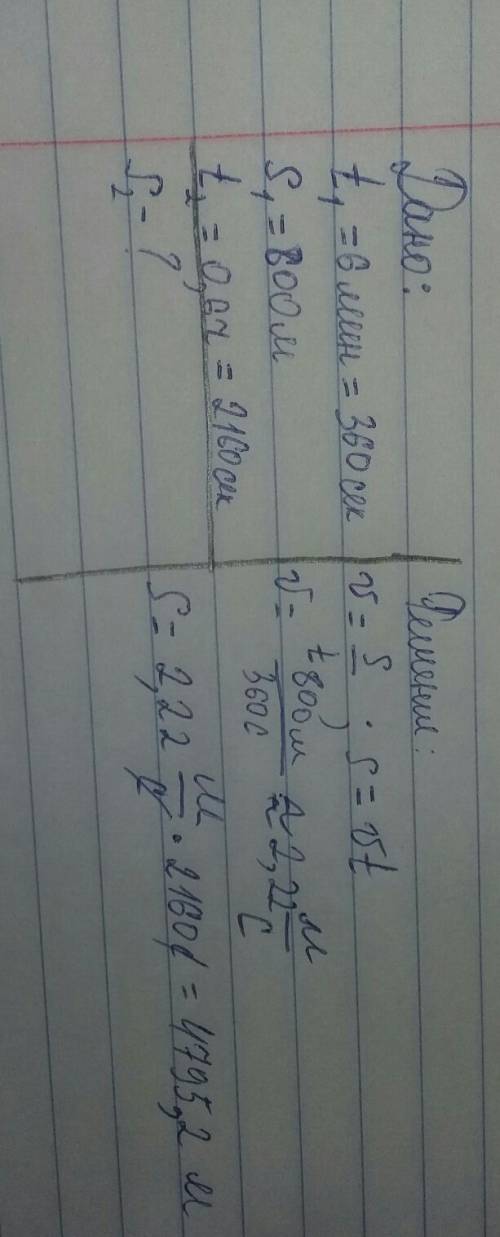 Дано:
t₁ = 6 мин = 360 сек
S₁ = 800 м
t₂ = 0,6 ч = 2160 сек
S₂ = ?
Решение:
v = S/t ; S = vt
v = 800 м/360 с ≈ 2,22 м/с
S = 2,22 м/с · 2160 с = 4795,2 м